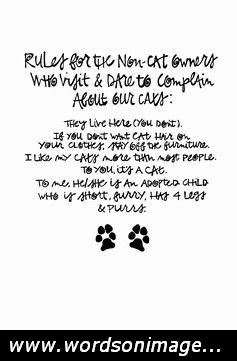 RULES FOR THE NON-CAT OWNERS
WHO VISIT & DARE TO COMPLAIN
ABOUT OUR CATS:
THEY LIVE HERE (YOU DON'T).
IF YOU DON'T WANT CAT HAIR ON
YOUR CLOTHES, STAY OFF THE FURNITURE.
I LIKE MY CATS MORE THAN MOST PEOPLE.
TO YOU, IT'S A CAT.
TO ME, HE/SHE IS AN ADOPTED CHILD
WHO IS SHORT, FURRY, HAS 4 LEGS
& PURRS.
www.wordsonimage...